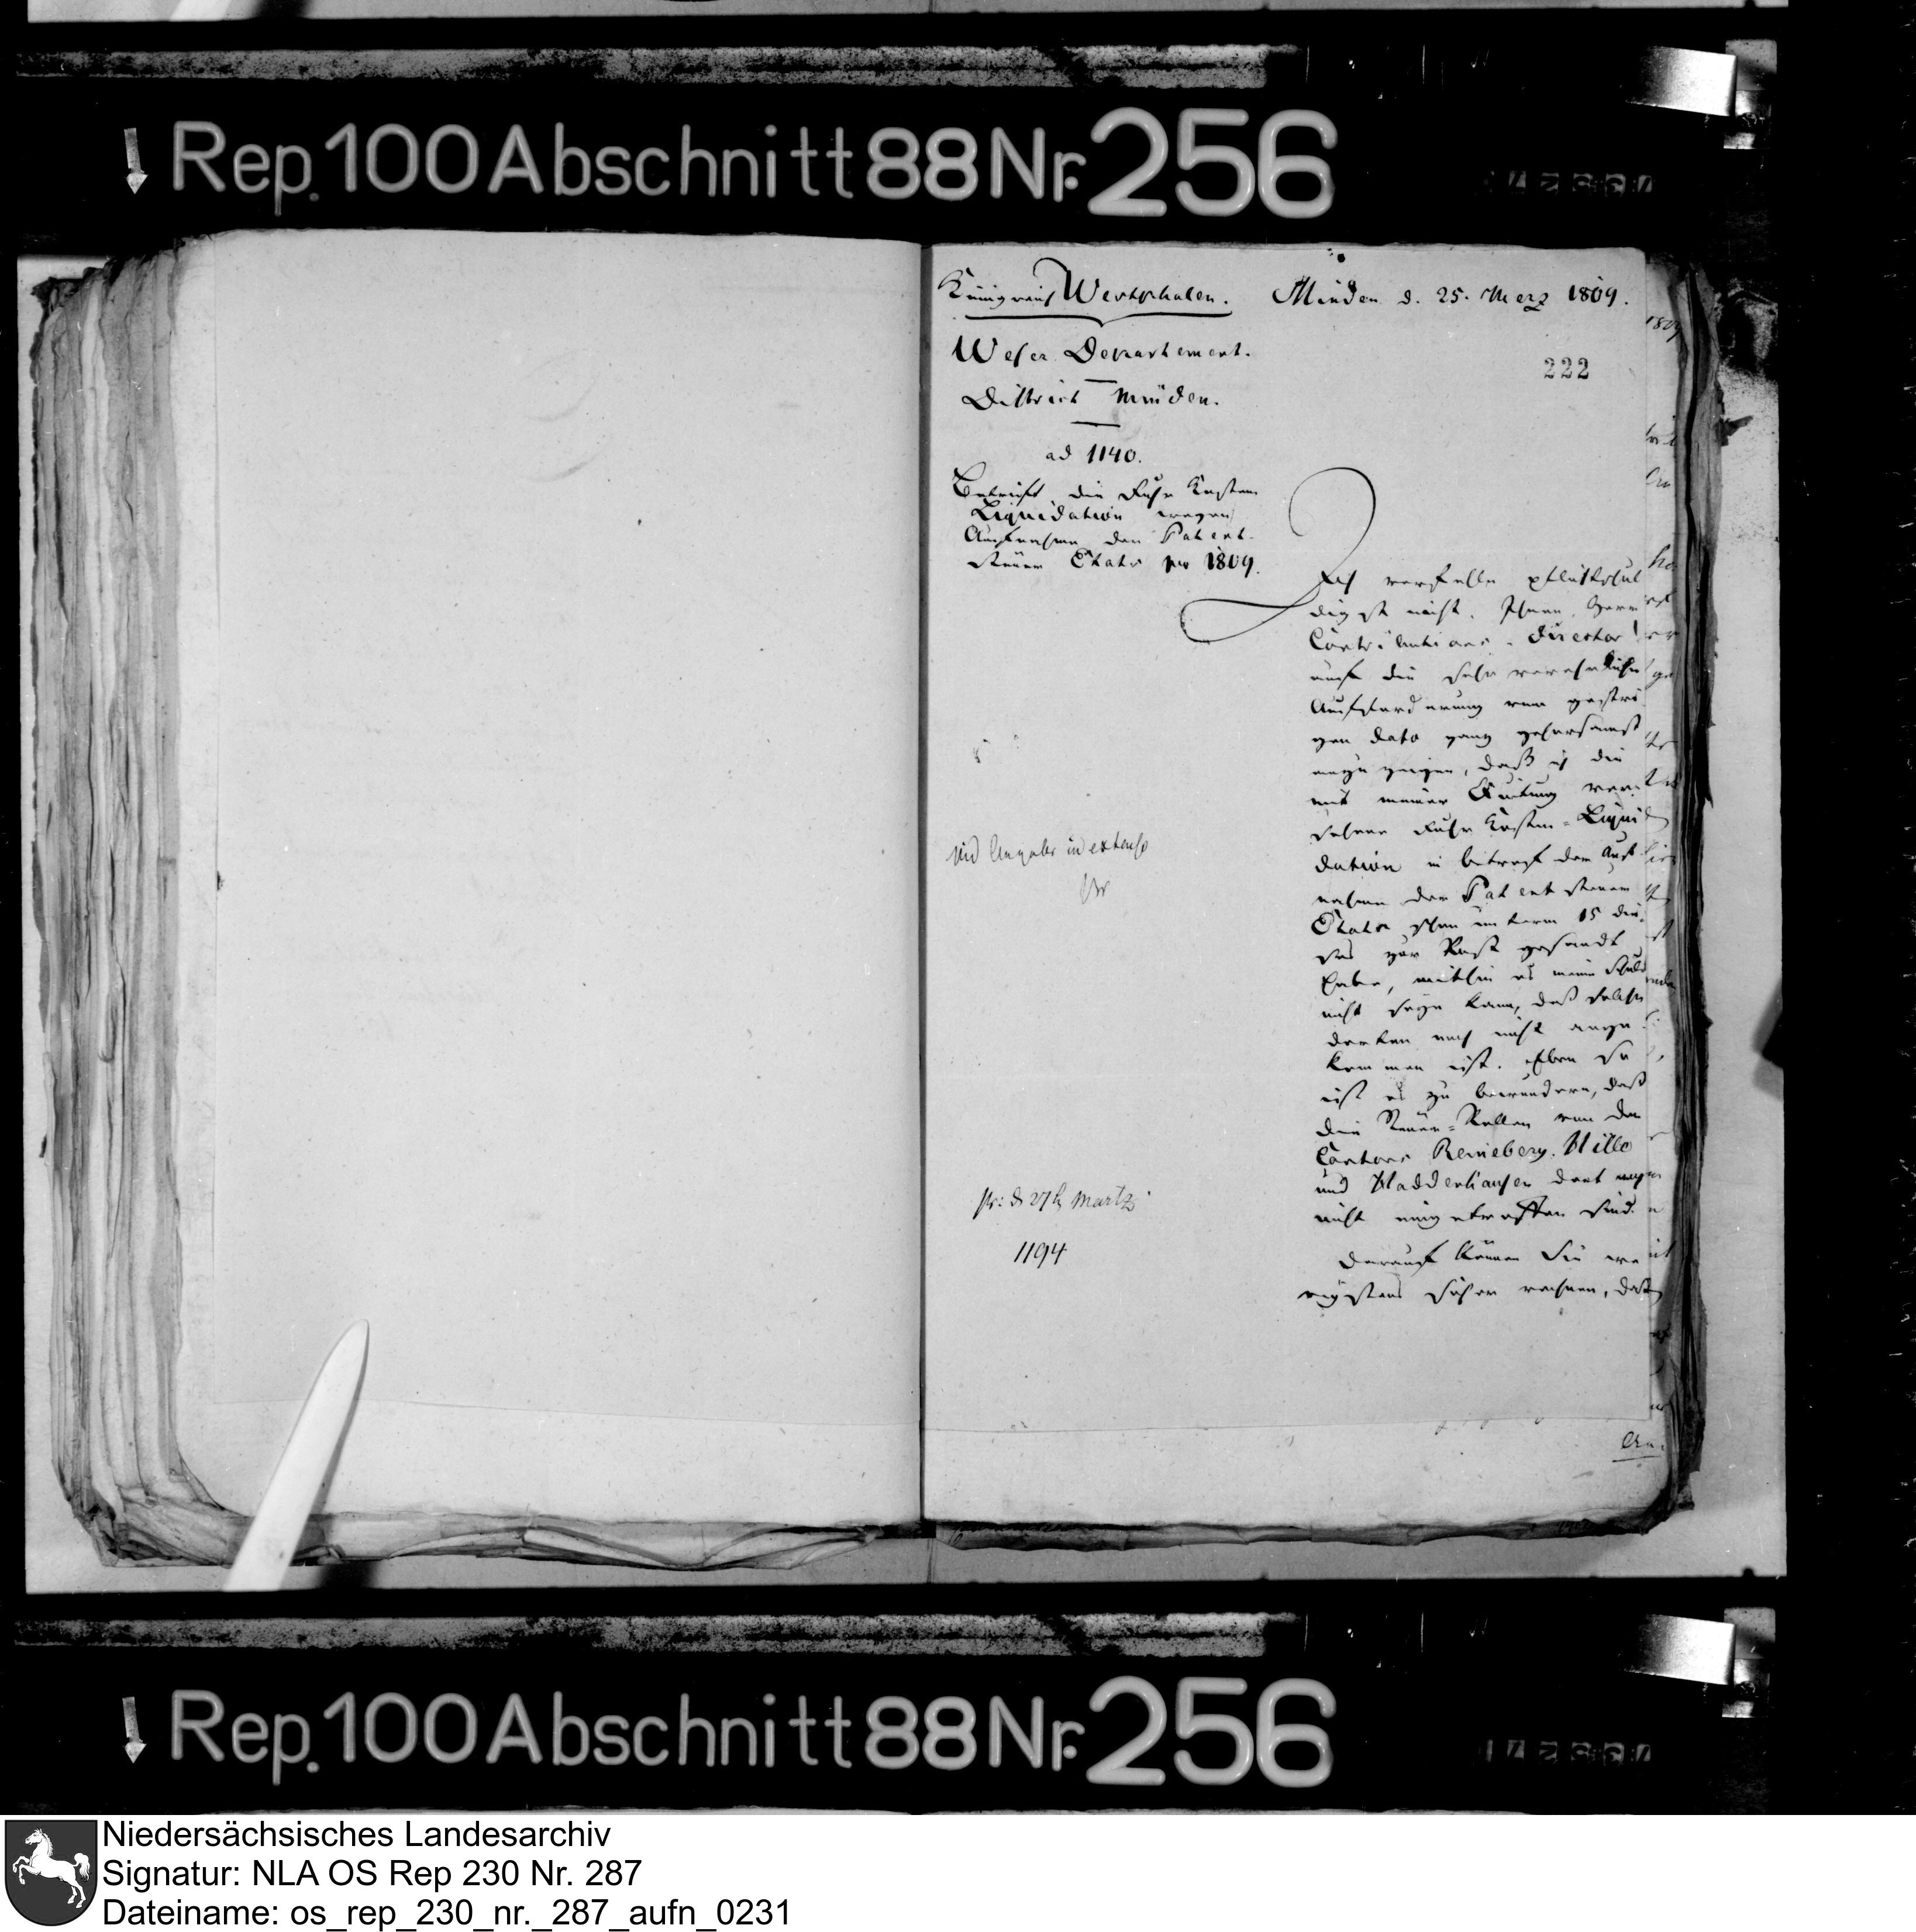 Rep. 100 Abschnitt 88 Nr. 256
Königreich Westphalen. Minden d. 25. Merz 1809.
Weser Departement.
222
District Minden.
ad 1140.
Betrift die Fuhr Kosten
Liquidation wegen
Aufnahme der Patent-
steuer Etats pro 1809.
Ich verfehle pflichtschul
digst nicht, Ihnen, Herr
Contributions-Director!
auf die sehr verehrliche
Aufforderung vom gestri
gen dato ganz gehorsamst
anzuzeigen, daß ich die
mit meiner Quitung ver
sehene Fuhr Kosten-Liqui
dation in betref der Auf
nahme der Patent steuer
Etats schon unterm 15 die
ses zur Post gesandt
habe, mithin es meine Schuld
nicht seyn kann, daß solche
dorten noch nicht ange
kommen ist. Eben so
ist es zu bewundern, daß
die Steuer-Rollen von den
Cantons Reineberg, Hille
und Haddenhausen dort noch
nicht eingetroffen sind.
Darauf können Sie we
nigstens sicher rechnen, daß
in extenso
pr: d 27t Martz
1194
Rep. 100 Abschnitt 88 Nr. 256
Niedersächsisches Landesarchiv
Signatur: NLA OS Rep 230 Nr. 287
Dateiname: os_rep_230_nr._287_aufn_0231